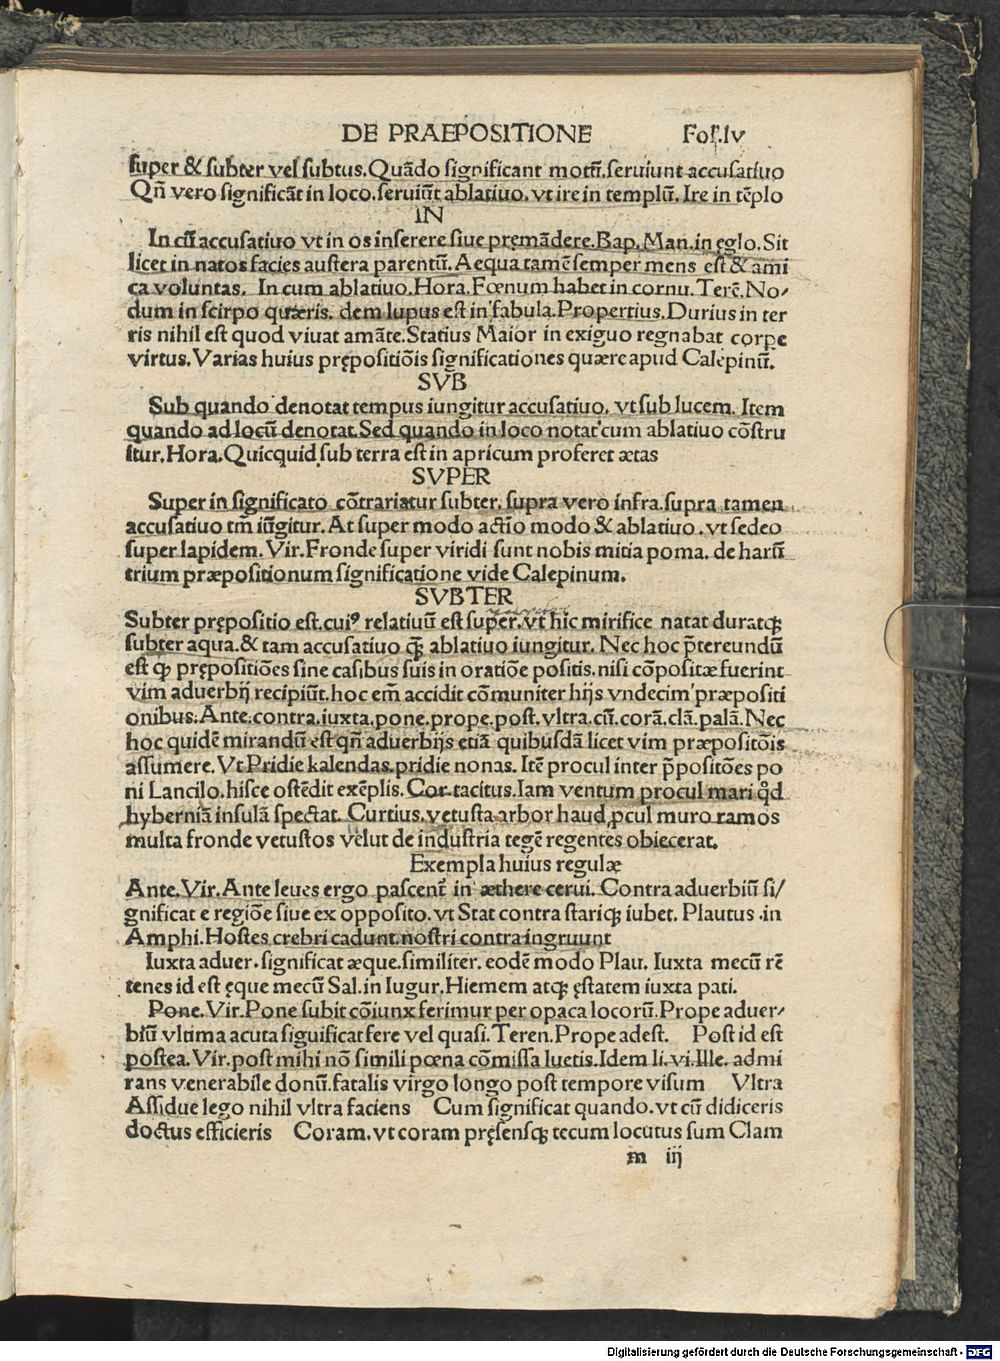 DE PRAEPOSITIONE Fol.lv
super & subter vel subtus.Quãdo significant motũ.seruiunt accusatiuo
Qñ vero significãt in loco.seruiũt ablatiuo.vt ire in templũ.Ire in tẽplo
IN
In cũ accusatiuo vt in os inserere siue pręmãdere.Bap.Man.in ęglo.Sit
licet in natos facies austera parentũ.Aequa tamẽ semper mens est & ami
ca voluntas. In cum ablatiuo.Hora.Fœnum habet in cornu.Terẽ.No-
dum in scirpo quæris. dem lupus est in fabula.Propertius.Durius in ter
ris nihil est quod viuat amãte.Statius Maior in exiguo regnabat corpe
virtus.Varias huius prępositiõis significationes quære apud Calepinũ.
SVB
Sub quando denotat tempus iungitur accusatiuo. vt sub lucem. Item
quando ad locũ denotat.Sed quando in loco notat cum ablatiuo cõstru
itur.Hora.Quicquid sub terra est in apricum proferet ætas
SVPER
Super in significato cõtrariatur subter. supra vero infra.supra tamen
accusatiuo tm̃ iũgitur. At super modo actĩo modo & ablatiuo .vt sedeo
super lapidem.Vir.Fronde super viridi sunt nobis mitia poma. de harũ
trium præpositionum significatione vide Calepinum.
SVBTER
Subter prępositio est.cuiꝰ relatiuũ est super.vt hic mirifice natat duratqꝫ
subter aqua.& tam accusatiuo qꝫ̃ ablatiuo iungitur. Nec hoc p̃tereundũ
est qꝫ prępositiões sine casibus suis in oratiõe positis.nisi cõpositæ fuerint
vim aduerbij recipiũt.hoc em̃ accidit cõmuniter hijs vndecim præpositi
onibus.Ante.contra.iuxta.pone.prope.post.vltra.cũ.corã.clã.palã.Nec
hoc quidẽ mirandũ est qñ aduerbijs etiã quibusdã licet vim præpositõis
assumere.Vt Pridie kalendas.pridie nonas.Itẽ procul inter p̃positões po
ni Lancilo.hisce ostẽdit exẽplis.Cor.tacitus.Iam ventum procul mari qd̃
hyberniã insulã spectat. Curtius.vetusta arbor haud ꝓcul muro ramos
multa fronde vetustos velut de industria tegẽ regentes obiecerat.
Exempla huius regulæ
Ante.Vir.Ante leues ergo pascent̃ in æthere cerui.Contra aduerbiũ si/
gnificat e regiõe siue ex opposito.vt Stat contra stariqꝫ iubet. Plautus .in
Amphi.Hostes crebri cadunt.nostri contra ingruunt
Iuxta aduer.significat æque.similiter.eodẽ modo Plau. Iuxta mecũ rẽ
tenes id est ęque mecũ Sal.in Iugur.Hiemem atqꝫ ęstatem iuxta pati.
Pone.Vir.Pone subit cõiunx ferimur per opaca locorũ.Prope aduer-
biũ vltima acuta siguificat fere vel quasi.Teren.Prope adest. Post id est
postea.Vir.post mihi nõ simili pœna cõmissa luetis.Idem li.vi.Ille. admi
rans venerabile donũ.fatalis virgo longo post tempore visum Vltra
Assidue lego nihil vltra faciens Cum significat quando.vt cũ didiceris
doctus efficieris Coram.vt coram pręsensqꝫ tecum locutus sum Clam
m iij
Digitalisierung gefördert durch die Deutsche Forschungsgemeinschaft - DFG